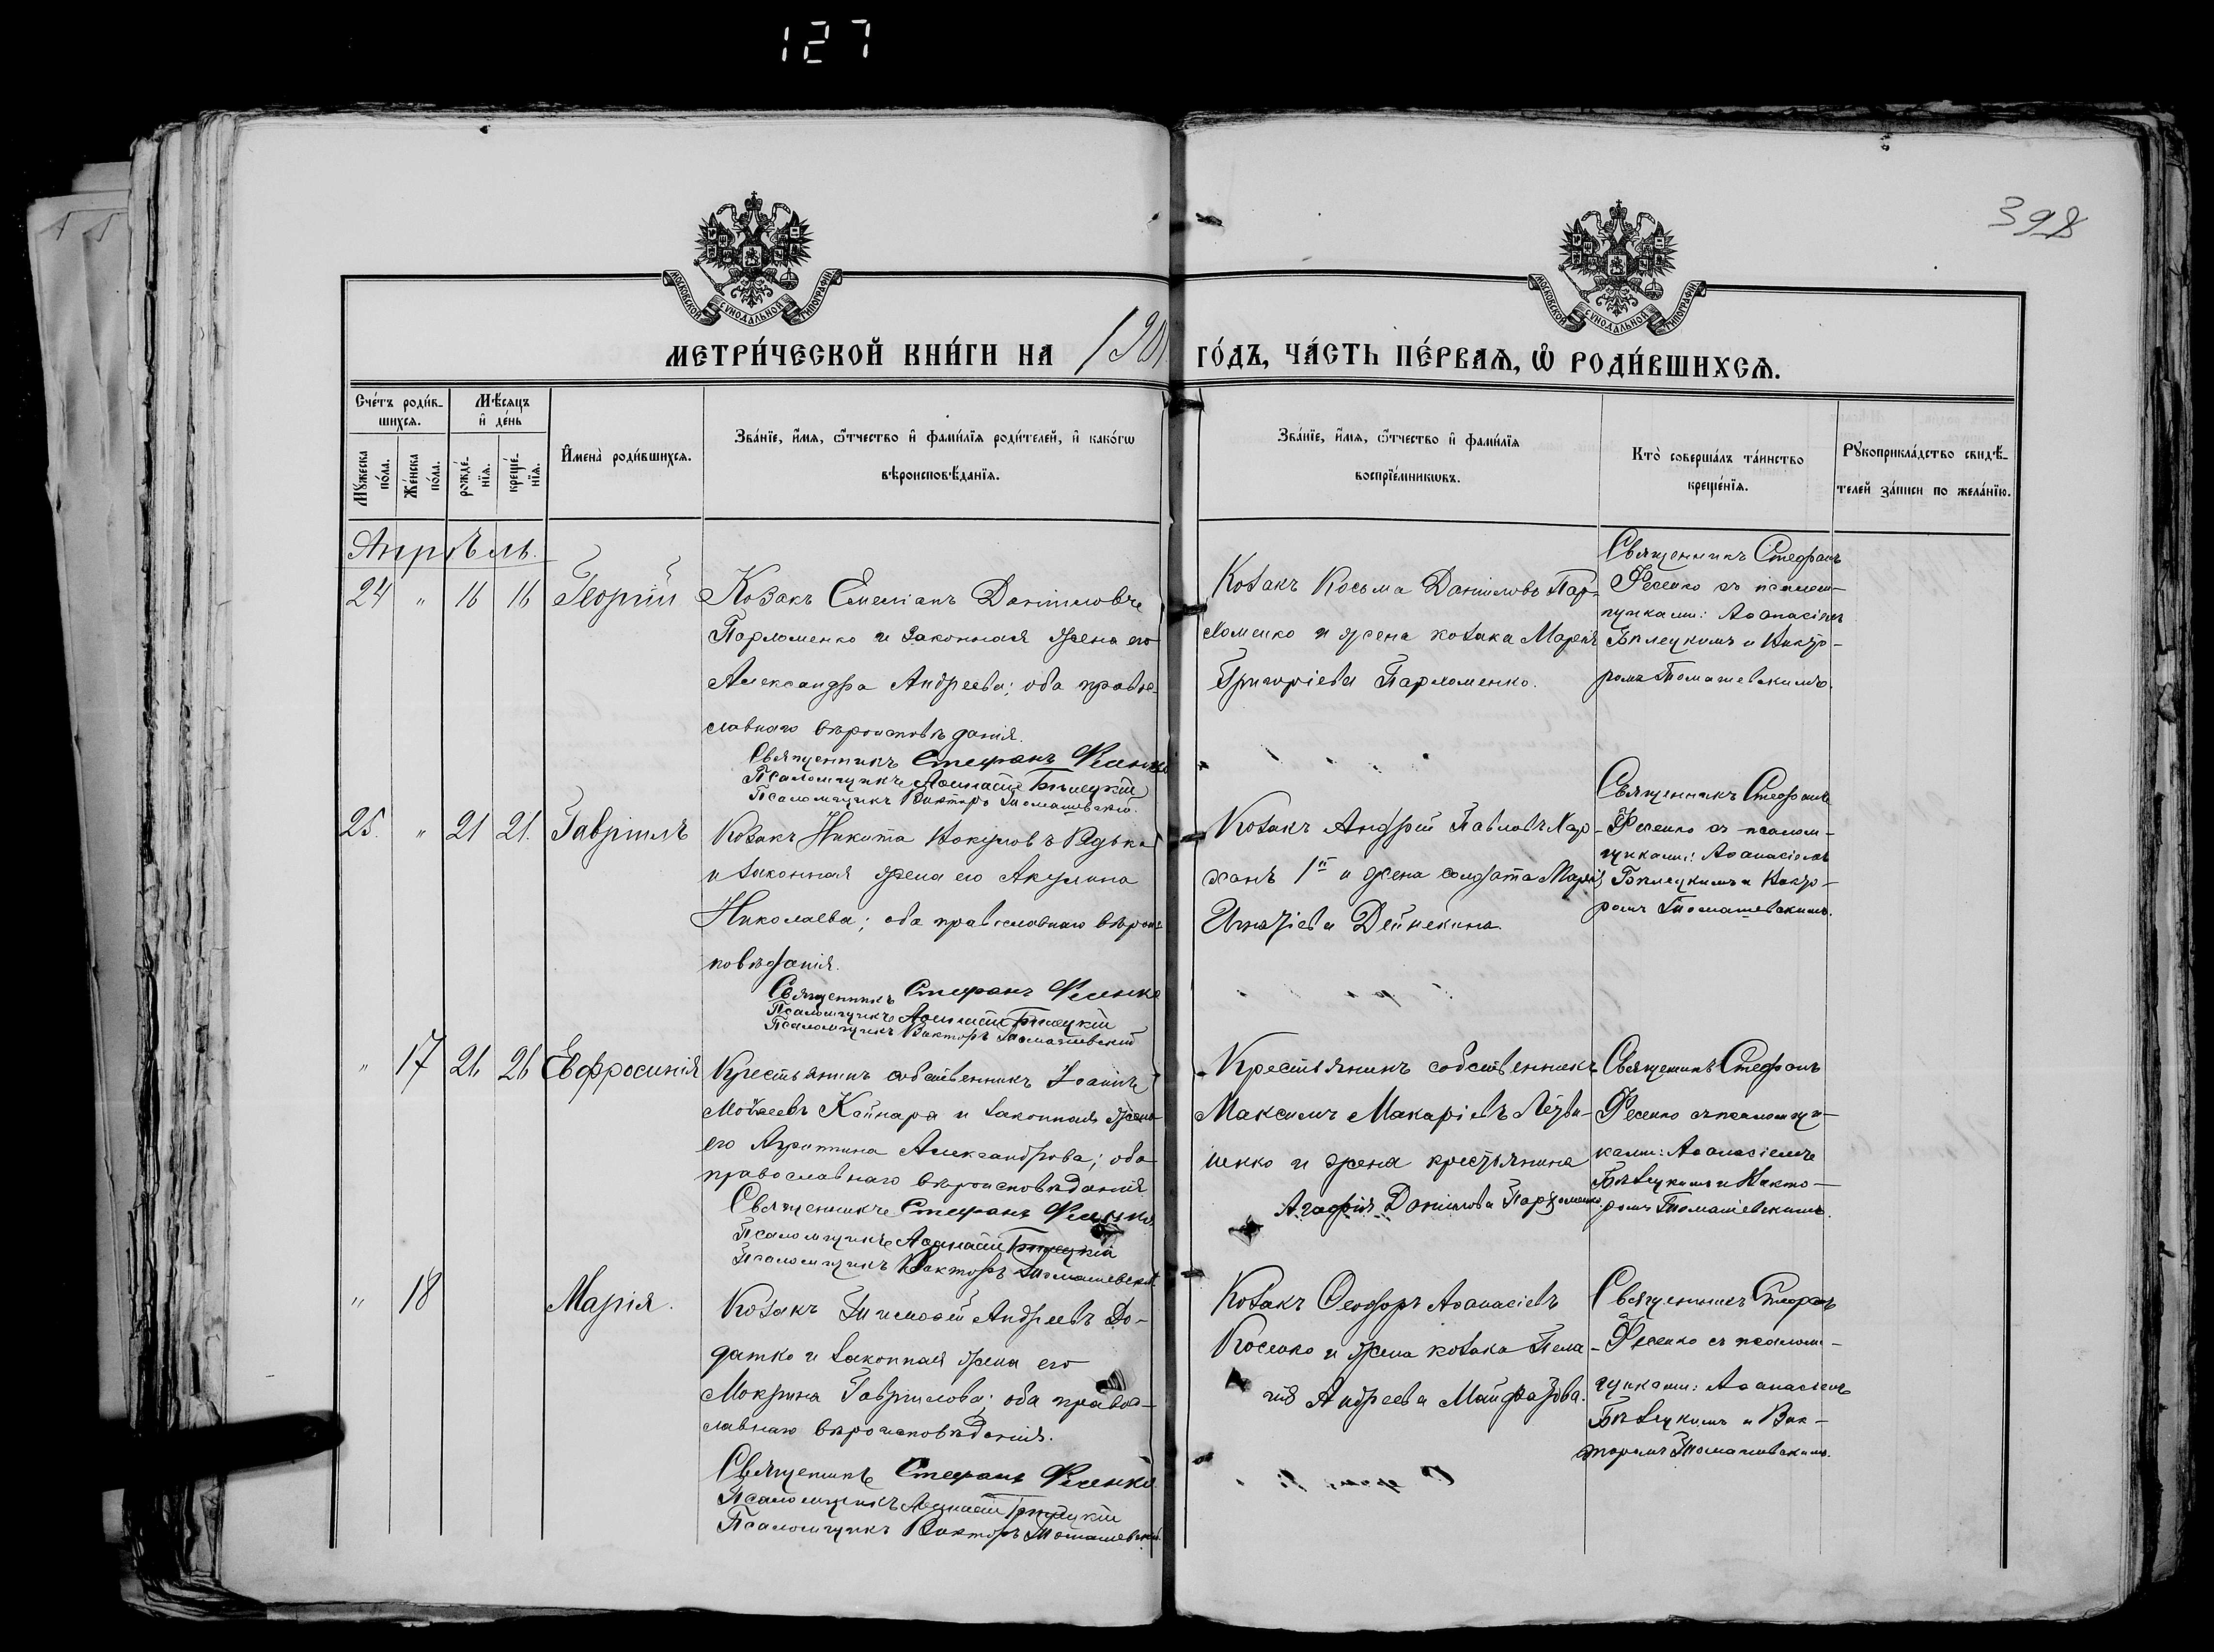 127
398
МОСКОВСКОЙ СѴНОДАЛЬНОЙ ТИПОГРАФІИ
МОСКОВСКОЙ СѴНОДАЛЬНОЙ ТИПОГРАФІИ
МЕТРИ́ЧЕСКОЙ КНИ́ГИ НА
ГО́ДЪ, ЧА́СТЬ ПЕ́РВАѦ, Ѡ҆ РОДИ́ВШИХСѦ.
Сче́тъ роди́в-
шихсѧ.
Мꙋ́жеска по́ла.
Же́нска по́ла.
Мѣ́сѧцъ
и҆ де́нь
рожде́-
нїѧ.
креще́-
нїѧ.
И҆мена̀ роди́вшихсѧ.
Зва́нїе, и҆́мѧ, ѻ҆́тчество и҆ фами́лїѧ роди́телей, и҆ како́гѡ
вѣроисповѣ́данїѧ.
Зва́нїе, и҆́мѧ, ѻ҆́тчество и҆ фами́лїѧ
воспрїе́мникѡвъ.
Кто̀ соверша́лъ та́инство
креще́нїѧ.
Рꙋкоприкла́дство свидѣ́-
телей за́писи по жела́нїю.
Апрѣль.
24 " 16 16 Георгій
Козакъ Емеліанъ Даніиловъ
Пархоменко и законная жена его
Александра Андреева; оба право-
славнаго вѣроисповѣданія.
Священникъ Стефанъ Фесенко
Псаломщикъ Аѳанасій Бѣлецкій
Псаломщикъ Викторъ Томашевскій.
Козакъ Косьма Даніиловъ Пар-
хоменко и жена козака Марія
Григоріева Пархоменко.
Священникъ Стефанъ
Фесенко съ псалом-
щиками: Аѳанасіемъ
Бѣлецкимъ и Викто-
ромъ Томашевскимъ.
25. " 21 21. Гавріилъ
Козакъ Никита Редька
и законная жена его Акулина
Николаева; оба православнаго вѣроис-
повѣданія.
Священникъ Стефанъ Фесенко
Псаломщикъ Аѳанасій Бѣлецкій
Псаломщикъ Викторъ Томашевскій
Козакъ Андрей Павловъ Хар-
ханъ 1й и жена солдата Марія
Игнатіева Дейнекина
Священникъ Стефанъ
Фесенко съ псалом-
щиками: Аѳанасіемъ
Бѣлецкимъ и Викто-
ромъ Томашевскимъ.
" 17 26 26 Евфросинія
Крестьянинъ собственникъ Іоаннъ
Моѵсеевъ и законная жена
его Агриппина Александрова; оба
православнаго вѣроисповѣданія
Священникъ Стефанъ Фесенко
Псаломщикъ Аѳанасій Бѣлецкій
Псаломщикъ Викторъ Томашевскій
Крестьянинъ собственникъ
Максимъ Макаріевъ
и жена крестьянина
Агафія Даніилова Пархоменко.
Священникъ Стефанъ
Фесенко съ псаломщи-
ками: Аѳанасіемъ
Бѣлецкимъ и Викто-
ромъ Томашевскимъ.
" 18 Марія.
Козакъ Тимоѳей Андреевъ До-
датко и законная жена его
Мокрина Гавріилова; оба право-
славнаго вѣроисповѣданія.
Священникъ Стефанъ Фесенко
Псаломщикъ Аѳанасій Бѣлецкій
Псаломщикъ Викторъ Томашевскій
Козакъ Ѳеодоръ Аѳанасіевъ
Косенко и жена козака Пела-
гія Андреева
Священникъ Стефанъ
Фесенко съ псалом-
щиками: Аѳанасіемъ
Бѣлецкимъ и Вик-
торомъ Томашевскимъ.